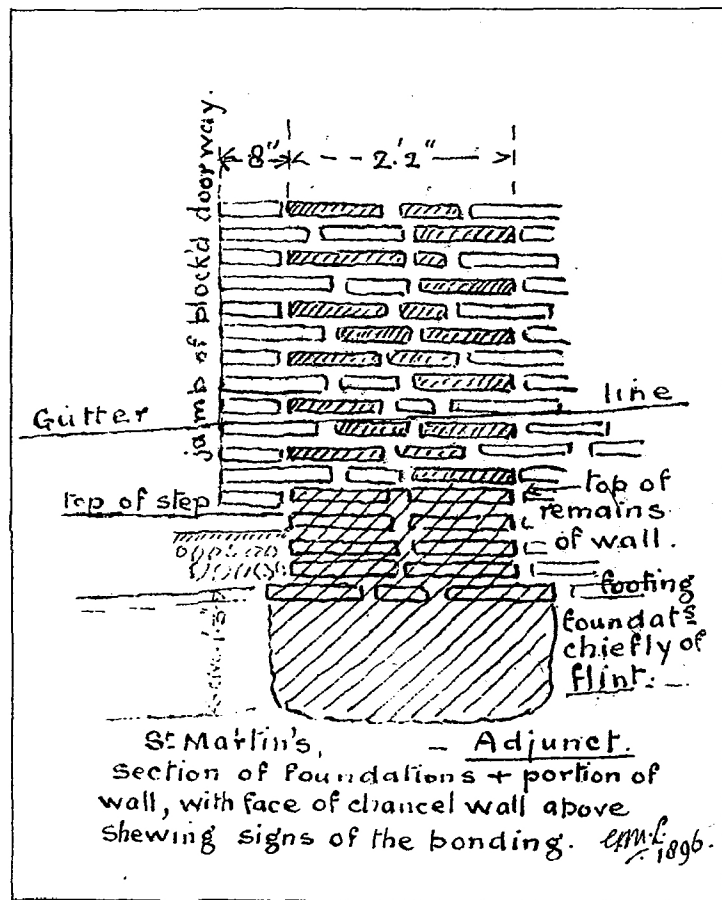 8" 2'.2"
jamb of block'd doorway.
Gutter line
top of step
top of
remains
of wall.
footing
foundats
chiefly of
flint.
St. Martin's, – Adjunct.
section of foundations + portion of
wall, with face of chancel wall above
shewing signs of the bonding.
1896.